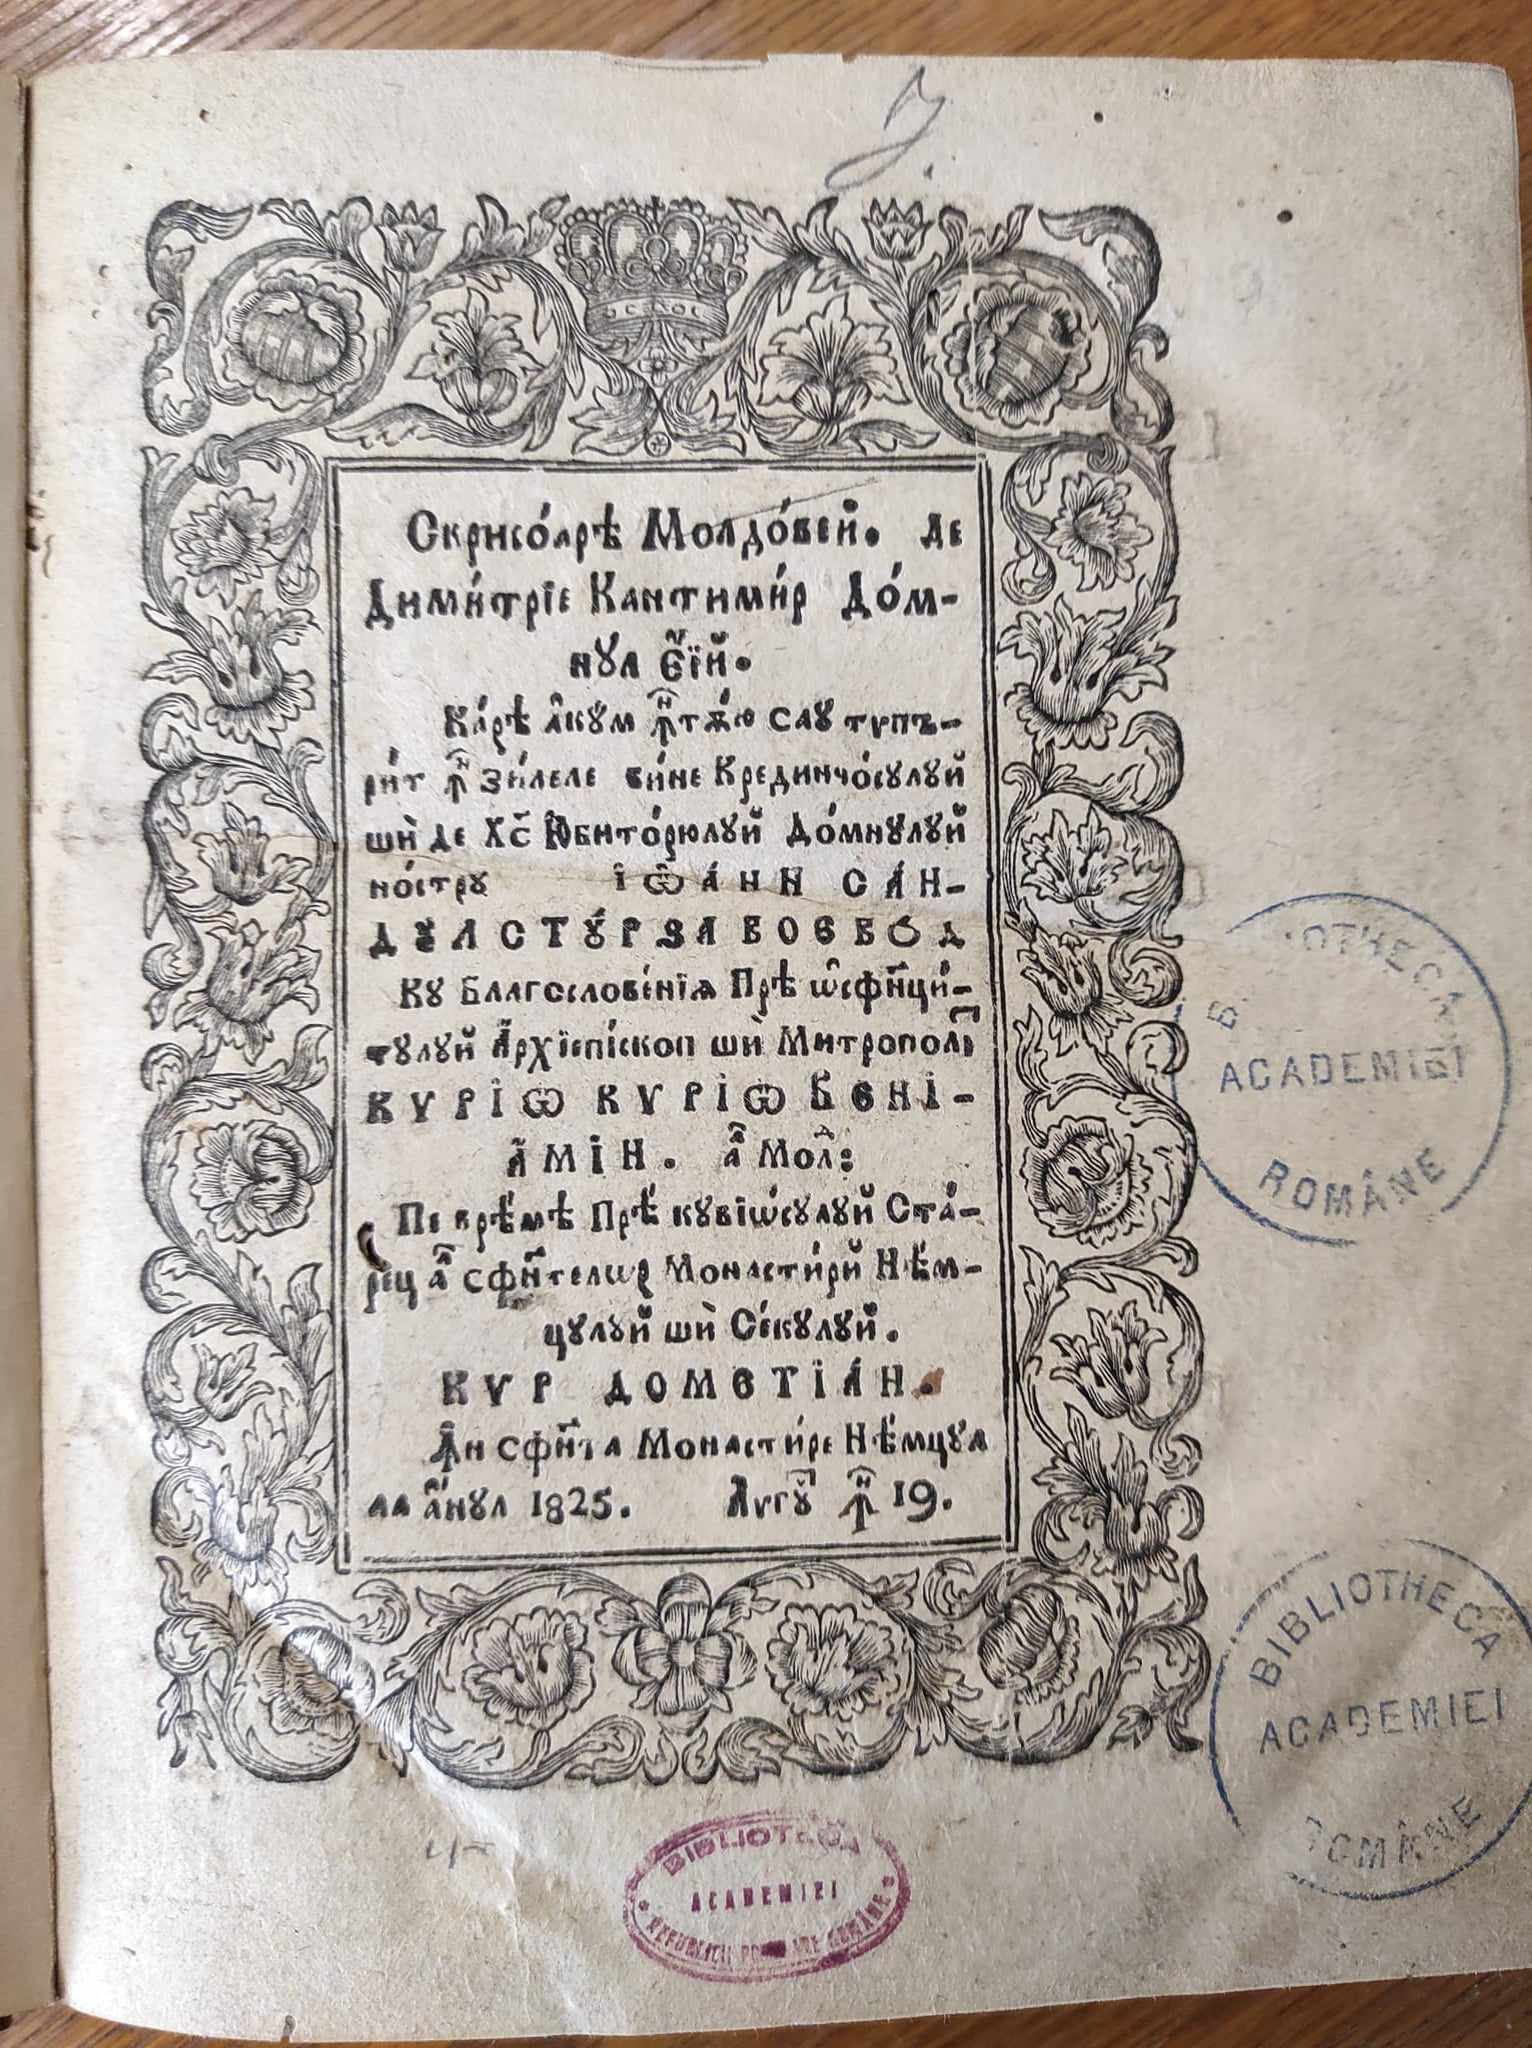 Скрисо́арѣ Молдо́вей. де
Дими́трїе Кантими́р До́м-
нул є҆́їй.
Ка́рѣ а҆кꙋ́м ꙟ҆н тѫ́ю саꙋ типъ-
ри́т ꙟ҆н зи́леле бине Крединчо́сꙋлꙋй
шѝ де Хс҃ Ю҆бито́рюлꙋй До́мнꙋлꙋй
но́стрꙋ І҆Ѡ҆А́НН СА́Н-
ДꙊЛ СТꙊ́РЗА ВОЄВОД
Кꙋ Благословенїѧ Прѣ ѡ҆сфн҃ци́-
тꙋлꙋй А҆рхїєпі́скоп шѝ Митрополі
КѴРІѠ КѴРІѠ ВЄНІ-
А҆МІН. а҆л Молд:
Пе врѣ́мѣ Прѣ́ кꙋвїѡ́сꙋлꙋй Ста́-
рец а҆л сфн҃телѡр Монасти́рй Нѣ́м-
цꙋлꙋй шѝ Се́кꙋлꙋй.
КѴР ДОМЄТІА́Н.
Ꙟ҆н сфн҃та Монасти́ре Нѣ́мцꙋл
ла а҆́нꙋл 1825. Аѵгꙋ ꙟ҆н 19.
BIBLIOTHECA
ACADEMIEI
ROMÂNE
BIBLIOTHECA
ACADEMIEI
ROMÂNE
BIBLIOTECA
ACADEMIEI
REPUBLICII POPULARE ROMÂNE